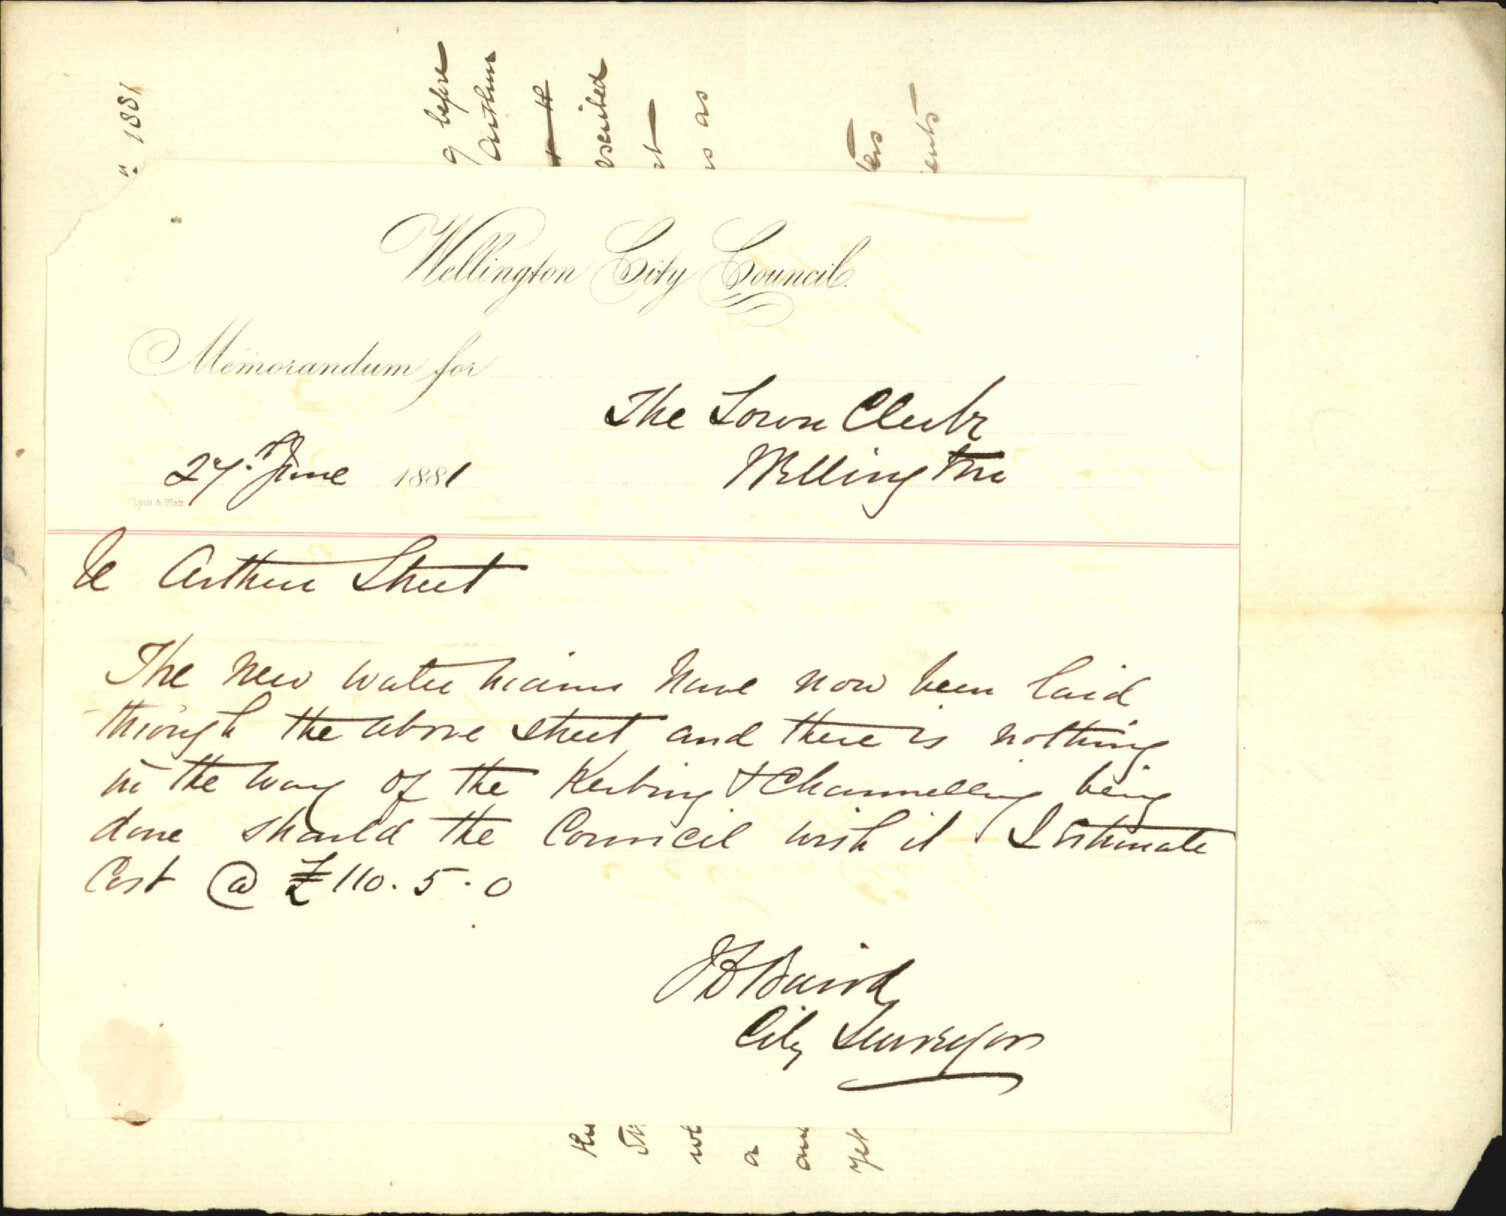 Wellington City Council.
Memorandum for
The Town Clerk
Wellington
27th June 1881
Lyon & Blair
Re Arthur Street
The new water mains have now been laid
through the above street and there is nothing
in the way of the Kerbing & Channelling being
done should the Council wish it I estimate
Cost @ £110.5.0
J D Baird
City Surveyor
1881
g before
Arthur
scribed
as
ents
not
a
yet